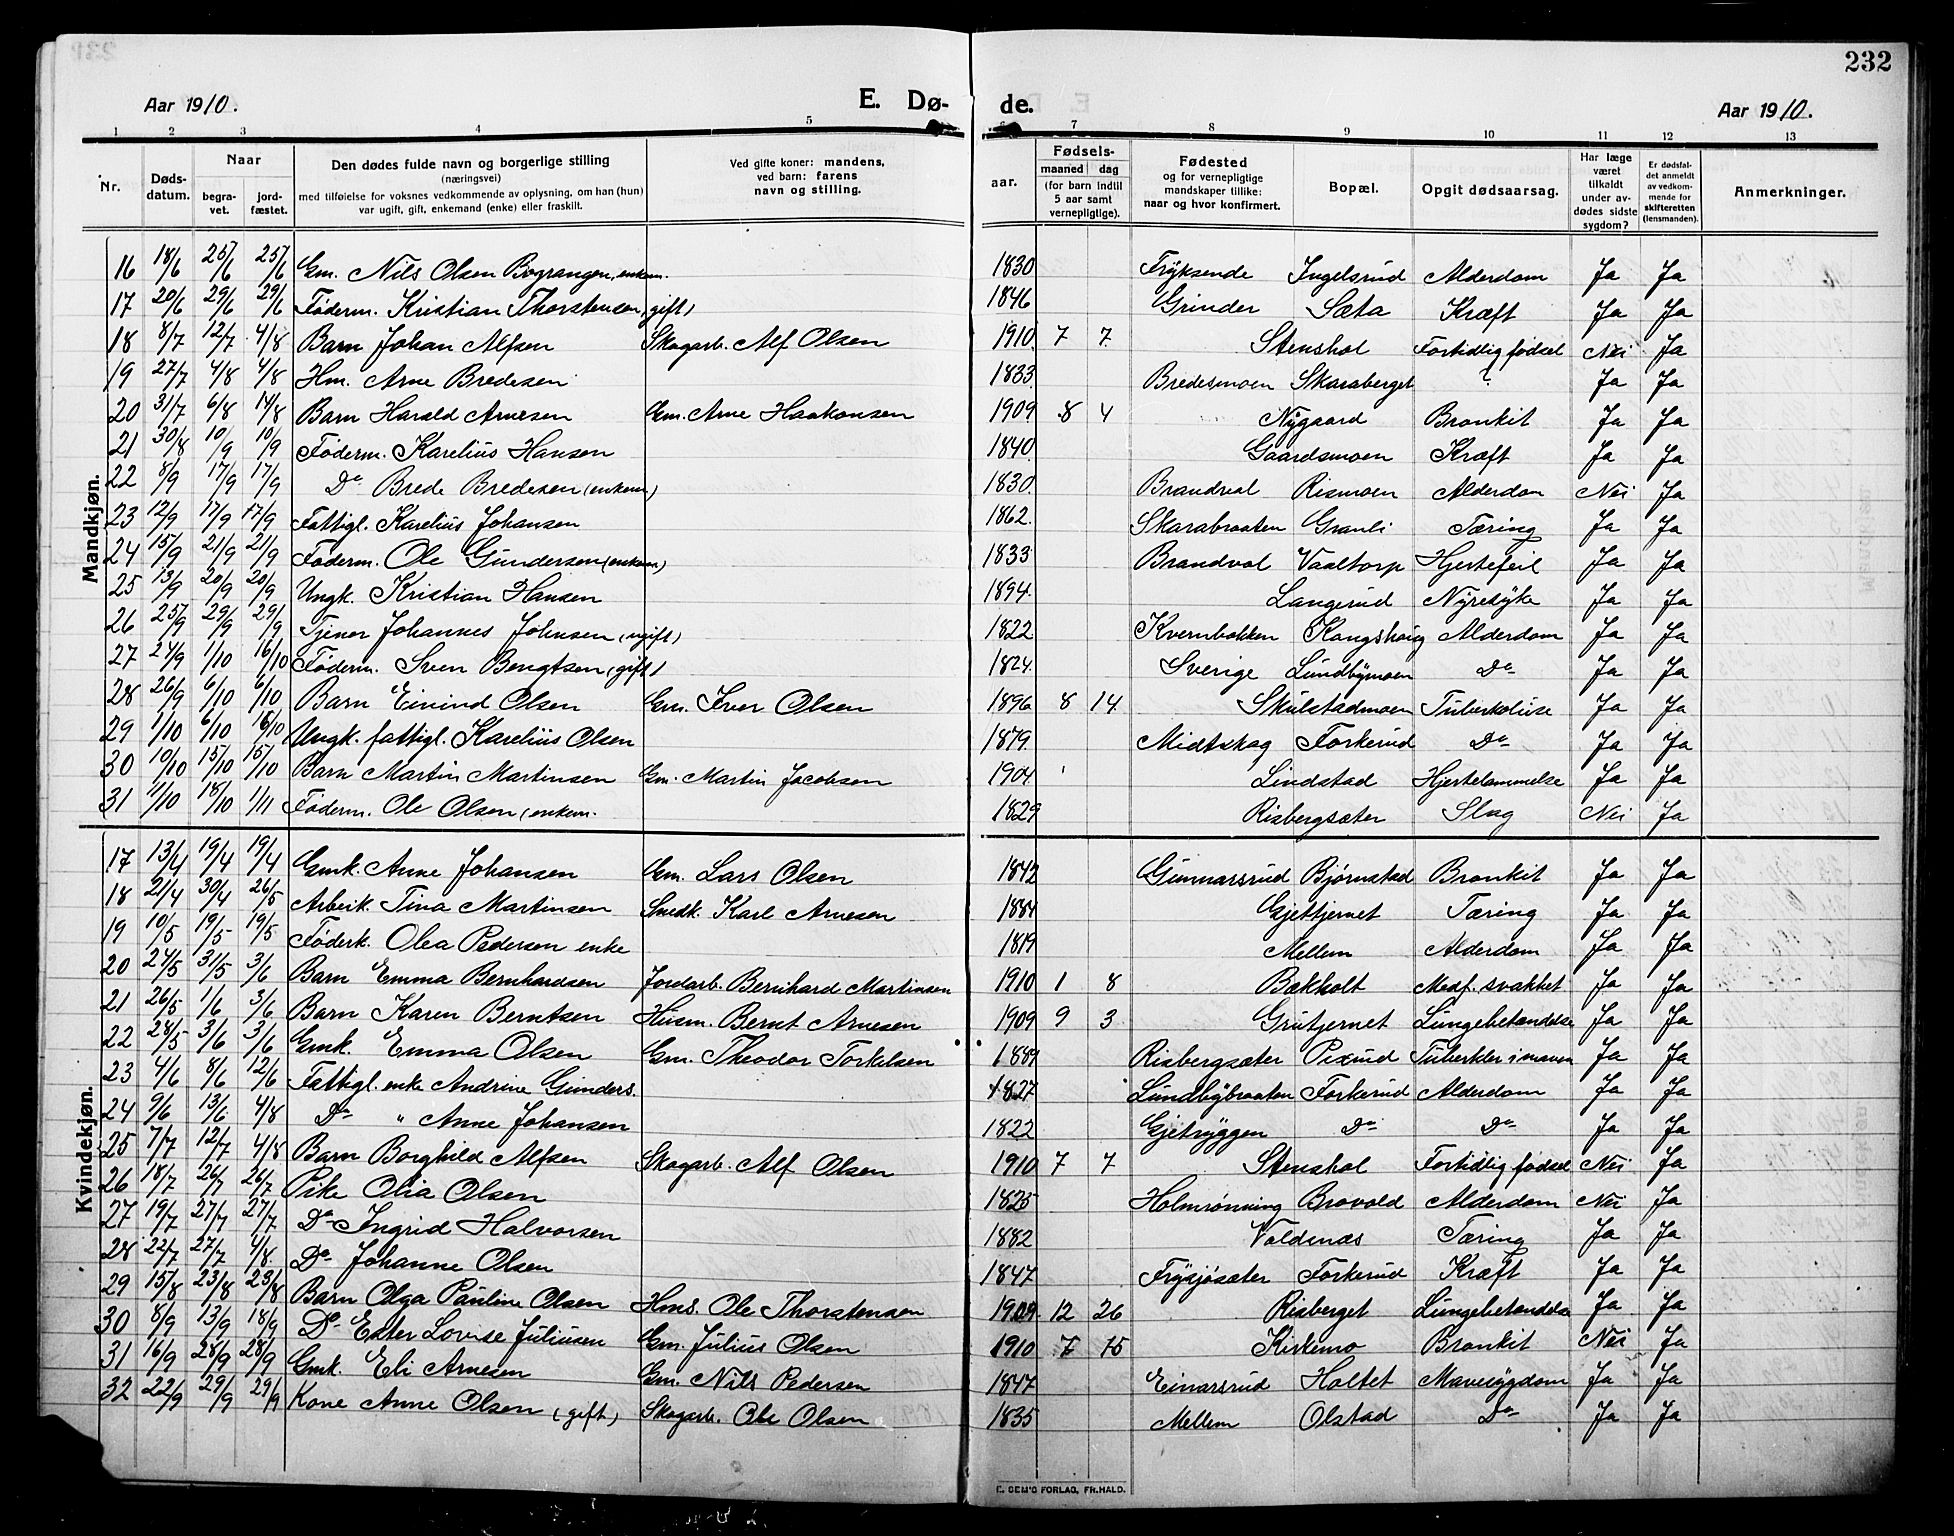 232
Aar 1910. E. Dø- de. Aar 1910.
1 2 3 4 5 7 8 9 10 11 12 13
Nr. Døds-datum. Naar begra-vet. jord-fæstet. Den dødes fulde navn og borgerlige stilling (næringsvei) med tilføielse for voksnes vedkommende av oplysning, om han (hun) var ugift, gift, enkemand (enke) eller fraskilt. Ved gifte koner: mandens, ved barn: farens navn og stilling. aar. Fødsels- maaned dag (for barn indtil 5 aar samt vernepligtige). Fødested og for vernepligtige mandskaper tillike: naar og hvor konfirmert. Bopæl. Opgit dødsaarsag. Har læge været tilkaldt under av-dødes sidste sygdom? Er dødsfal-det anmeldt av vedkom-mende for skifteretten (lensmanden). Anmerkninger.
Mandkjøn.
16 18/6 25/6 25/6 Gm. Nils Olsen Bograngen, enkem. 1830 Fryksende Ingelsrud Alderdom Ja Ja
17 20/6 29/6 29/6 Føderm. Kristian Thorstensen, gift) 1846 Grinder Sæta Kræft Ja Ja
18 8/7 12/7 4/8 Barn Johan Alfsen Skogarb. Alf Olsen 1910 7 7 Stenshol Fortidlig fødsel Nei Ja
19 27/7 4/8 4/8 Hm. Arne Bredesen 1833 Bredesmoen Skaraberget ? Ja Ja
20 31/7 6/8 14/8 Barn Harald Arnesen Gm. Arne Haakonsen 1909 8 4 Nygaard Bronkit Ja Ja
21 30/8 10/9 10/9 Føderm. Karelius Hansen 1840 Gaardsmoen Kræft Ja Ja
22 8/9 17/9 17/9 Do Brede Bredesen (enkem) 1830 Brandval Rismoen Alderdom Nei Ja
23 12/9 17/9 17/9 Fattigl. Karelius Johansen 1862. Skarabraaten Granli Tæring Ja Ja
24 15/9 21/9 21/9 Føderm. Ole Gundersen (enkem) 1833 Brandval Vaaltorp Hjertefeil Ja Ja
25 13/9 20/9 20/9 Ungk. Kristian Hansen 1894. Langerud Nyresyke Ja Ja
26 25/9 29/9 29/9 Tjener Johannes Johnsen (ugift) 1822 Kvernbakken Kongshaug Alderdom Ja Ja
27 24/9 1/10 16/10 Føderm. Sven Bengtsen (gift) 1824. Sverige Lundbymoen Do Ja Ja
28 26/9 6/10 6/10 Barn Eivind Olsen Gm. Iver Olsen 1896 8 14 Skulstadmoen Tuberkoluse Ja Ja
29 1/10 6/10 16/10 Ungk. fattigl. Karelius Olsen 1879. Midtskog Forkerud Do Ja Ja
30 10/10 15/10 15/10 Barn Martin Martinsen Gm. Martin Jacobsen 1904 Lindstad Hjertelammelse Ja Ja
31 11/10 18/10 1/11 Føderm. Ole Olsen (enkem. 1829 Risbergsæter Slag Nei Ja
Kvindekjøn.
17 13/4 19/4 19/4 Gmk. Anne Johansen Gm. Lars Olsen 1842 Gunnarsrud Bjørnstad Bronkit Ja Ja
18 21/4 30/4 26/5 Arbeik. Tina Martinsen Smedk. Karl Arnesen 1884 Gjettjernet Tæring Ja Ja
19 10/5 19/5 19/5 Føderk. Olea Pedersen enke 1819 Mellem Alderdom Ja Ja
20 24/5 31/5 3/6 Barn Emma Bernhardsen Jordarb. Bernhard Martinsen 1910 1 8 Bækholt Medf. svakhet Ja Ja
21 26/5 1/6 3/6 Barn Karen Berntsen Husm. Bernt Arnesen 1909 9 3 Grutjernet Lungebetændelse Ja Ja
22 28/5 3/6 3/6 Gmk. Emma Olsen Gm. Theodor Torkelsen 1884 Risbergsæter Pixrud Tuberkler i maven Ja Ja
23 4/6 8/6 12/6 Fattigl. enke Andrine Gunders. 1827 Lundbybraaten Forkerud Alderdom Ja Ja
24 9/6 13/6 4/8 Do " Anne Johansen 1822 Gjetryggen Do Do Ja Ja
25 7/7 12/7 4/8 Barn Borghild Alfsen Skogarb. Alf Olsen 1910 7 7 Stenshol Fortidlig fødsel Nei Ja
26 18/7 26/7 26/7 Pike Olia Olsen 1825 Holmrønning Brovold Alderdom Nei Ja
27 19/7 27/7 27/7 Do Ingrid Halvorsen 1882 Valdenæs Tæring Ja Ja
28 22/7 27/7 4/8 Do Johanne Olsen 1847 Frysjøsæter Forkerud Kræft Ja Ja
29 15/8 23/8 23/8 Barn Olga Pauline Olsen Hms. Ole Thorstensen 1909 12 26 Risberget Lungebetændelse Ja Ja
30 8/9 13/9 18/9 Do Ester Lovise Juliusen Gm. Julius Olsen 1910 7 15 Kirkemo Bronkit Nei Ja
31 16/9 28/9 28/9 Gmk. Eli Arnesen Gm. Nils Pedersen 1847 Einarsrud Holtet Mavesygdom Ja Ja
32 22/9 29/9 29/9 Kone Anne Olsen (gift) Skogarb. Ole Olsen 1835 Mellem Olstad Do Ja Ja
E. SEM'S FORLAG, FR.HALD.